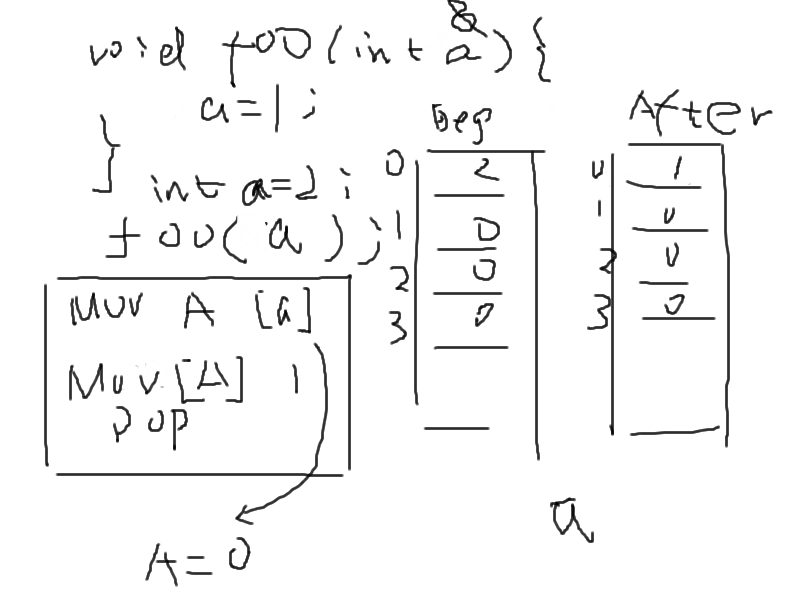 void foo(int &a){
a=1;
}
int a=2;
foo(a);
Mov A [a]
Mov [A] 1
pop
A=0
Bef
0 2
1 0
2 0
3 0
After
0 1
1 0
2 0
3 0
a